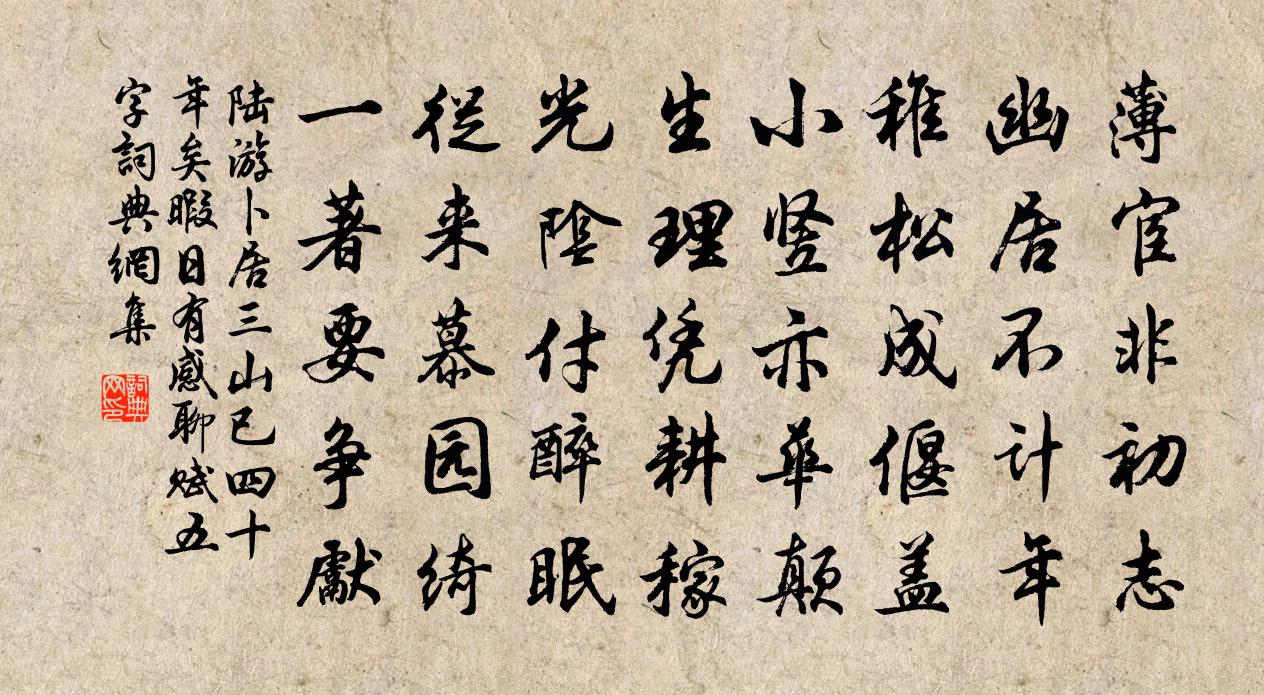 薄宦非初志
幽居不计年
稚松成偃盖
小竖亦華颠
生理凭耕稼
光陰付醉眠
從来慕园绮
一著要争獻
陆游卜居三山已四十
年矣暇日有感聊赋五
字詞典網集
詞典
网印